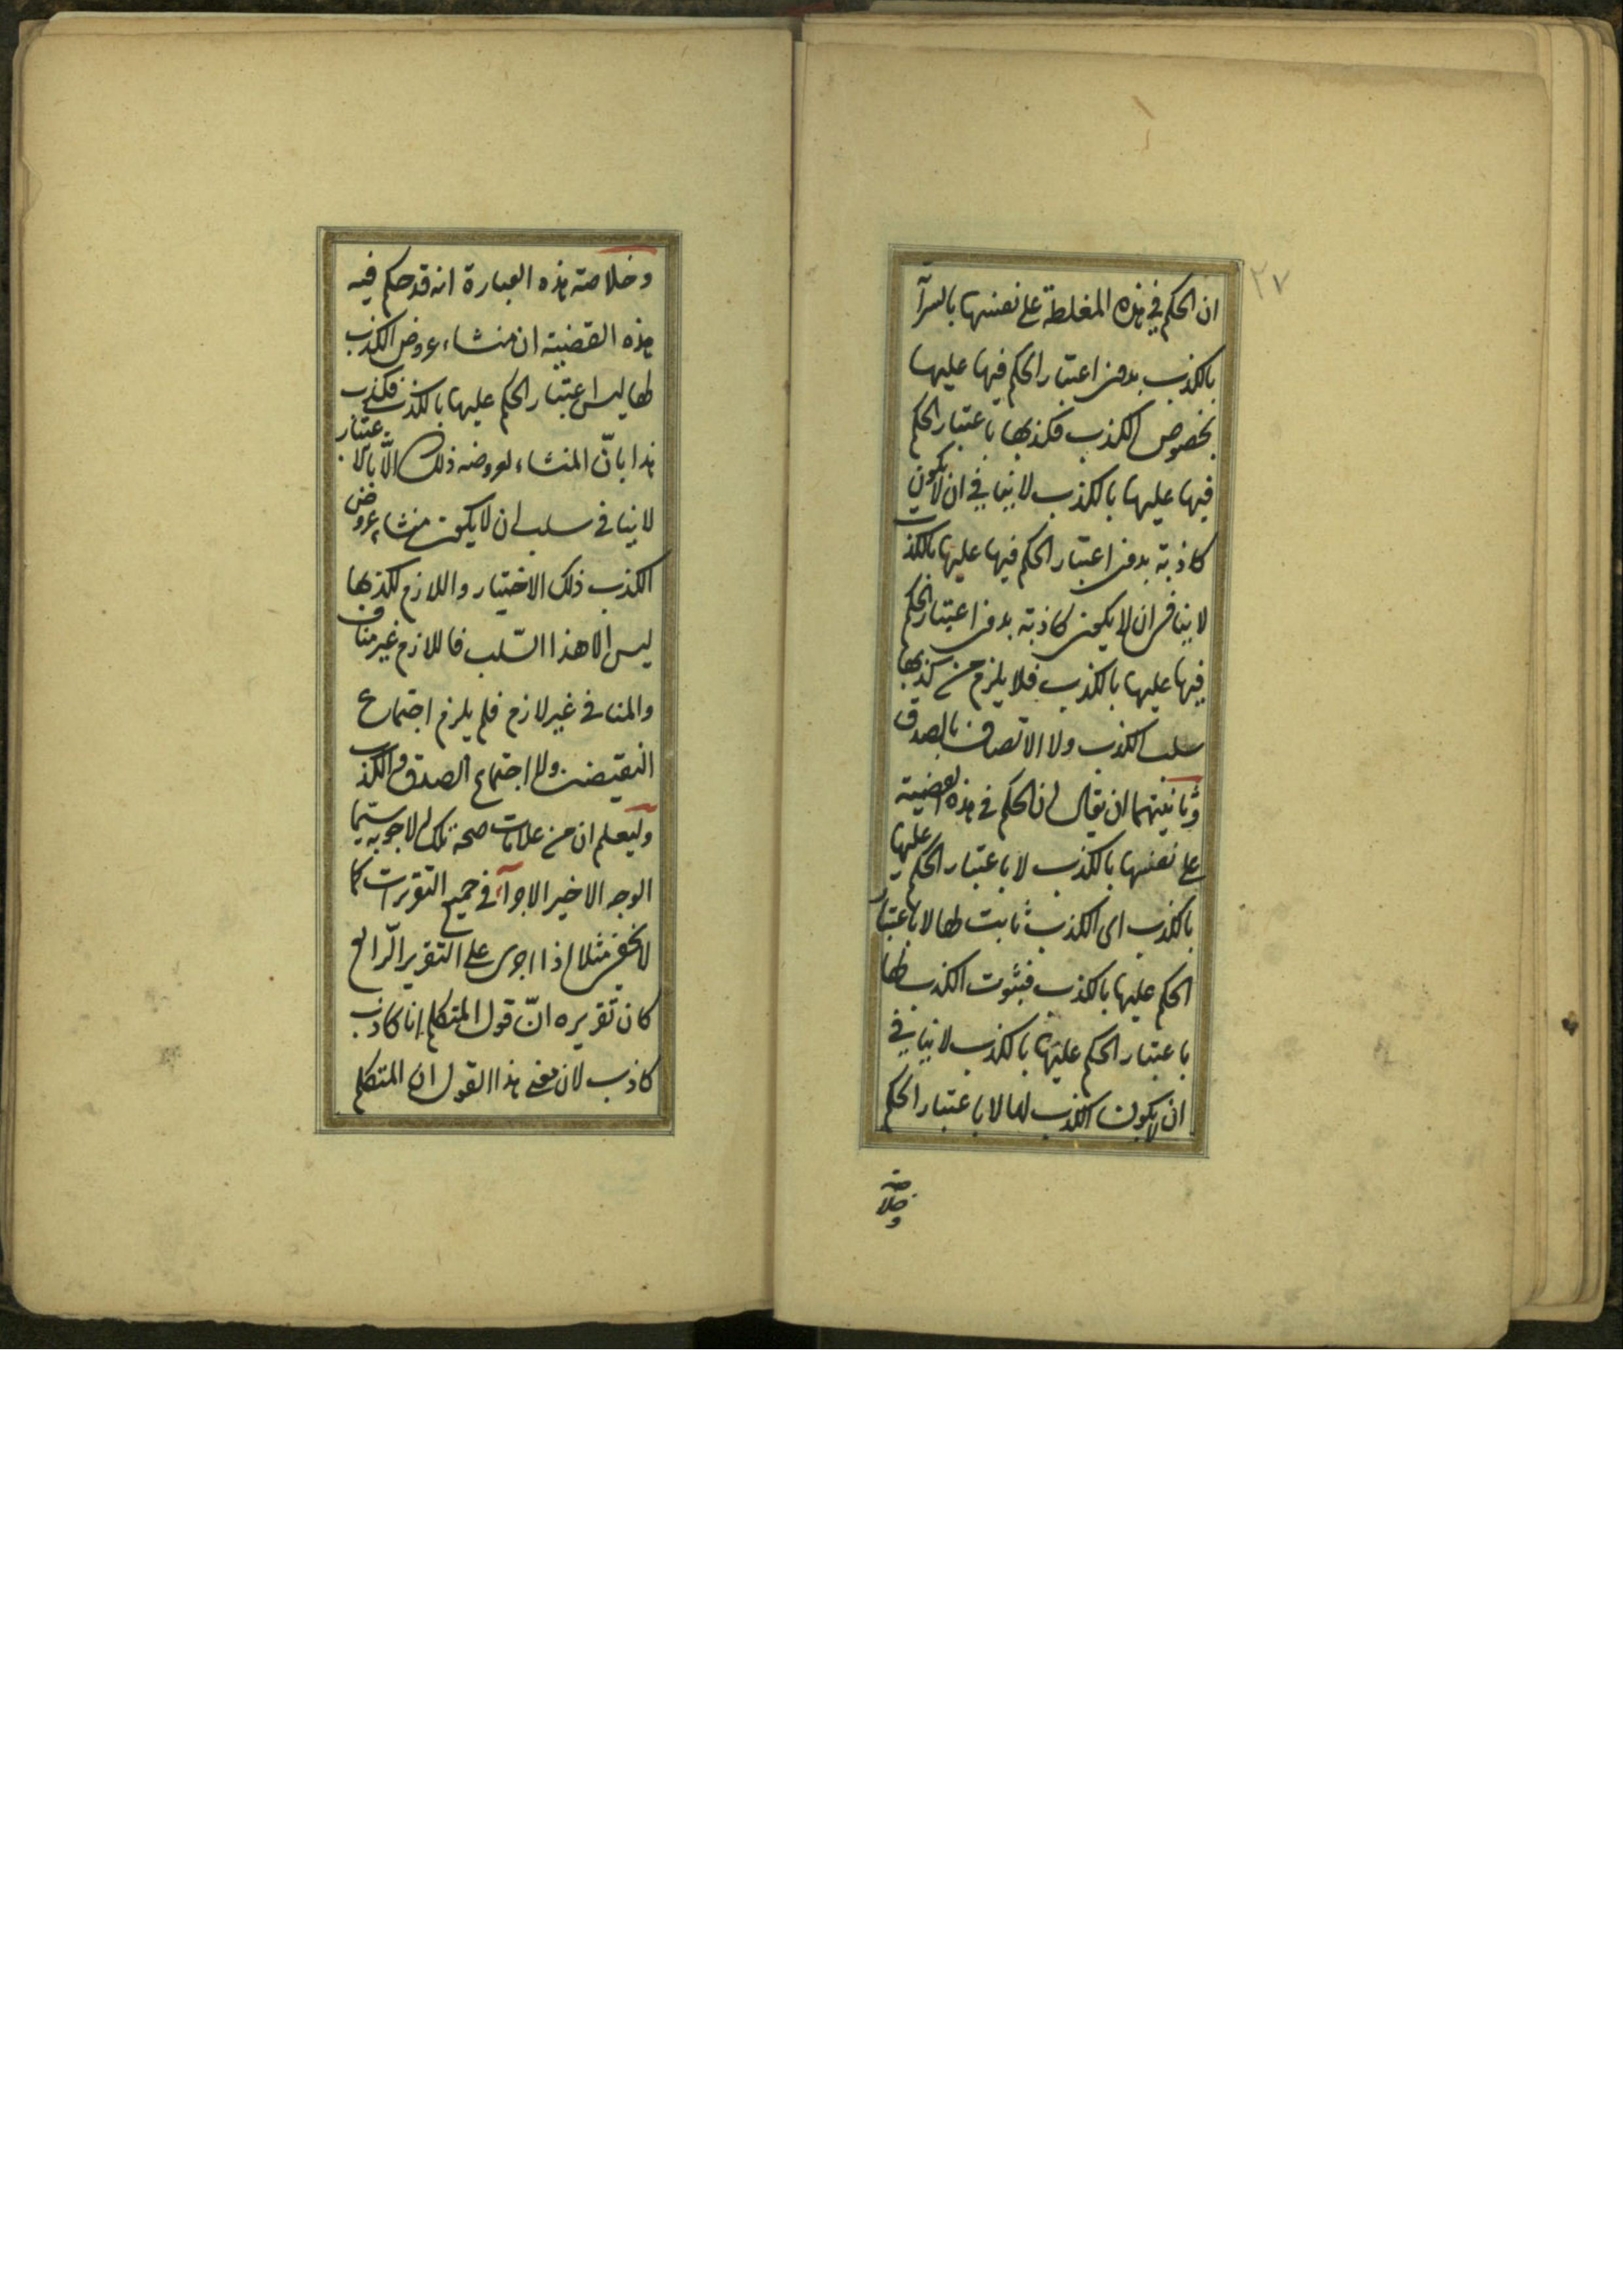 ٢٧
ان الحكم في هذه المغلطة على نفسها بالسرآ
بالكذب بدون اعتبار الحكم فيها عليها
بخصوص الكذب فكذبها باعتبار الحكم
فيها عليها بالكذب لا ينافي ان لا يكون
كاذبة بدون اعتبار الحكم فيها عليها بالكذب
لا ينافي ان لا يكون كاذبة بدون اعتبار الحكم
فيها عليها بالكذب فلا يلزم من كذبها
سلب الكذب ولا الاتصاف بالصدق
وثانيتهما ان يقال ان الحكم في هذه القضية
على نفسها بالكذب لا باعتبار الحكم عليها
بالكذب اى الكذب ثابت لها لا باعتبار
الحكم عليها بالكذب فثبوت الكذب لها
باعتبار الحكم عليها بالكذب لا ينافي
ان لا يكون الكذب لها لا باعتبار الحكم
وخلاصة
وخلاصة هذه العبارة انه قد حكم فيه
هذه القضية ان منشاء عروض الكذب
لها ليس اعتبار الحكم عليها بالكذب فكذب
هذا بانّ المنشاء لعروضه ذلك الّا بالاعتبار
لا ينافي سلب ان لا يكون منشاء عروض
الكذب ذلك الاختيار واللازم لكذبها
ليس الا هذا السّلب فاللازم غير مناف
والمنافي غير لازم فلم يلزم اجتماع
النقيضين ولا اجتماع الصدق والكذب
وليعلم ان من علامات صحة تلك الاجوبه سيّما
الوجه الاخير الاجرآء في جميع التقريرات كما
لا يخفى مثلا اذا اجرى على التقرير الرّابع
كان تقريره انّ قول المتكلم انا كاذب
كاذب لان معنى هذا القول ان المتكلم